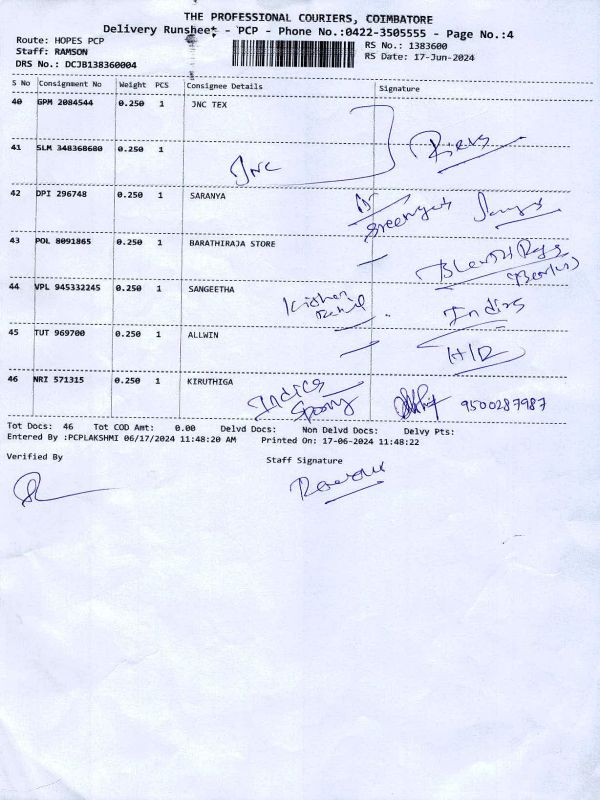 THE PROFESSIONAL COURIERS, COIMBATORE
Delivery Runsheet - PCP - Phone No.:0422-3505555 - Page No.:4
Route: HOPES PCP
RS No.: 1383600
Staff: RAMSON
RS Date: 17-Jun-2024
DRS No.: DCJB138360004
S No Consignment No Weight PCS Consignee Details Signature
40 GPM 2084544 0.250 1 JNC TEX
41 SLM 348368680 0.250 1
JNC
42 DPI 296748 0.250 1 SARANYA
43 POL 8091865 0.250 1 BARATHIRAJA STORE
44 VPL 945332245 0.250 1 SANGEETHA
Kishen
45 TUT 969700 0.250 1 ALLWIN
46 NRI 571315 0.250 1 KIRUTHIGA
9500287987
Tot Docs: 46 Tot COD Amt: 0.00 Delvd Docs: Non Delvd Docs: Delvy Pts:
Entered By :PCPLAKSHMI 06/17/2024 11:48:20 AM Printed On: 17-06-2024 11:48:22
Verified By
Staff Signature